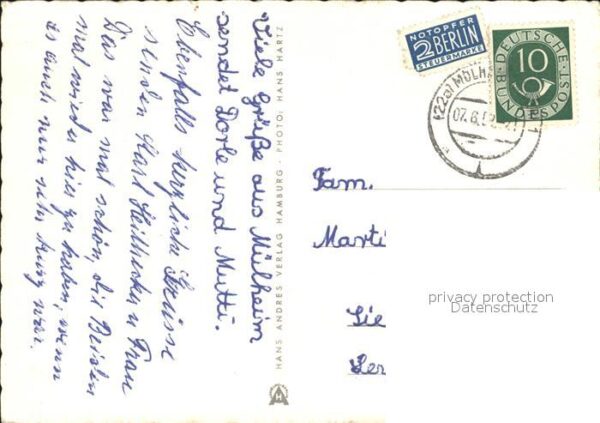 Viele Grüße aus Mülheim
sendet Dorle und Mutti.
Ebenfalls herzliche Grüsse
senden Karl u Frau
Das war mal schön, die Beiden
mal wieder hier zu haben, wenn
es auch nur sehr kurz war.
HANS ANDRES VERLAG HAMBURG · PHOTO: HANS HARTZ
NOTOPFER
2 BERLIN
STEUERMARKE
DEUTSCHE BUNDESPOST
10
(22a) MÜLH
07.6.5
Fam.
Marti
privacy protection
Datenschutz